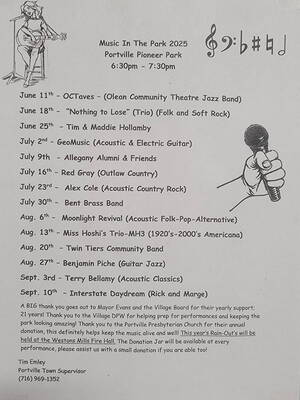 Music In The Park 2025
Portville Pioneer Park
6:30pm - 7:30pm
June 11th - OCTaves - (Olean Community Theatre Jazz Band)
June 18th - "Nothing to Lose" (Trio) (Folk and Soft Rock)
June 25th - Tim & Maddie Hollamby
July 2nd - GeoMusic (Acoustic & Electric Guitar)
July 9th - Allegany Alumni & Friends
July 16th - Red Gray (Outlaw Country)
July 23rd - Alex Cole (Acoustic Country Rock)
July 30th - Bent Brass Band
Aug. 6th - Moonlight Revival (Acoustic Folk-Pop-Alternative)
Aug. 13th - Miss Hoshi's Trio-MH3 (1920's-2000's Americana)
Aug. 20th - Twin Tiers Community Band
Aug. 27th - Benjamin Piche (Guitar Jazz)
Sept. 3rd - Terry Bellamy (Acoustic Classics)
Sept. 10th - Interstate Daydream (Rick and Marge)
A BIG thank you goes out to Mayor Evans and the Village Board for their yearly support;
21 years! Thank you to the Village DPW for helping prep for performances and keeping the
park looking amazing! Thank you to the Portville Presbyterian Church for their annual
donation, this definitely helps keep the music alive and well! This year's Rain-Out's will be
held at the Westons Mills Fire Hall. The Donation Jar will be available at every
performance, please assist us with a small donation if you are able too!
Tim Emley
Portville Town Supervisor
(716) 969-1352